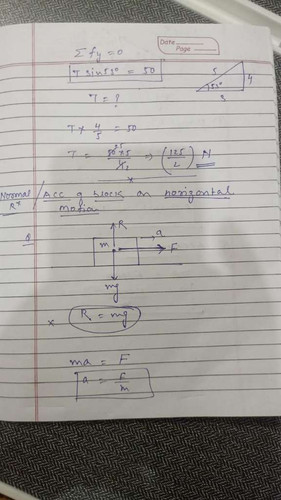 Date
Page
Σ fy = 0
T sin 53° = 50
5
4
53°
3
T = ?
T × 4/5 = 50
T = 50 × 5 / 4 ⇒ (125/2) N
25
2
Normal Rx^n / Acc of block on horizontal
motion
Q
R
a
m
F
mg
x R = mg
ma = F
a = F/m